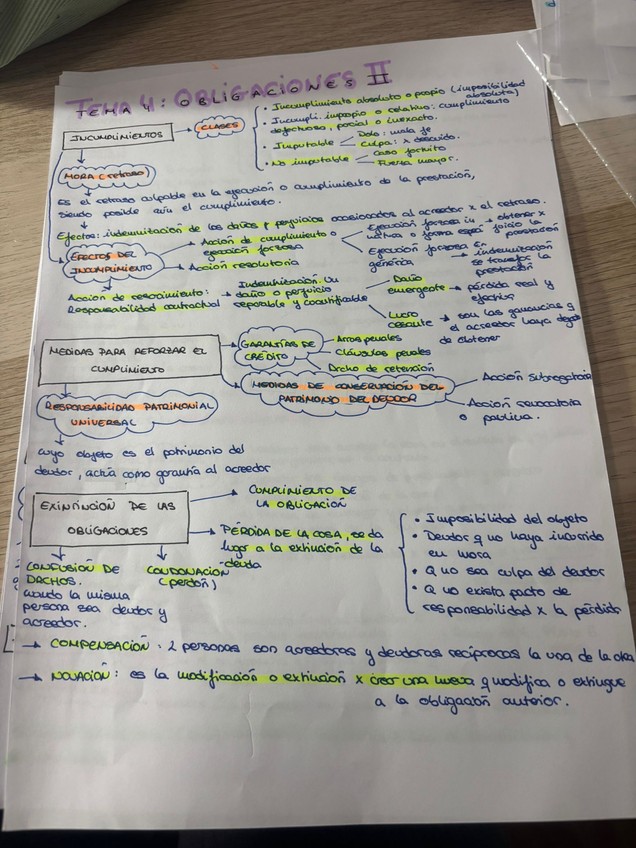 TEMA 4: OBLIGACIONES II
INCUMPLIMIENTOS → CLASES
• Incumplimiento absoluto o propio (imposibilidad absoluta)
• Incumpli. impropio o relativo: cumplimiento
defectuoso, parcial o inexacto.
• Imputable
Dolo: mala fe
Culpa: x descuido.
• No imputable
Caso fortuito
Fuerza mayor.
MORA (retraso)
Es el retraso culpable en la ejecución o cumplimiento de la prestación,
siendo posible aún el cumplimiento.
Efectos: indemnización de los daños y perjuicios ocasionados al acreedor x el retraso.
EFECTOS DEL
INCUMPLIMIENTO
→ Acción de cumplimiento o
ejecución forzosa
Ejecución forzosa in
natura o forma espcí
→ obtener x
juicio la
prestación
Ejecución forzosa en
genérica
→ indemnización
se transfor la
prestación
→ Acción resolutoria
Acción de resarcimiento: →
Responsabilidad contractual
Indemnización un
daño o perjuicio
reparable y cuantificable
Daño
emergente → pérdida real y
efectiva
Lucro
cesante → son las ganancias q
el acreedor haya dejado
de obtener
MEDIDAS PARA REFORZAR EL
CUMPLIMIENTO
GARANTÍAS DE
CRÉDITO
Arras penales
Cláusulas penales
Drcho de retención
MEDIDAS DE CONSERVACIÓN DEL
PATRIMONIO DEL DEUDOR
Acción subrogatoria
Acción revocatoria
o pauliana.
RESPONSABILIDAD PATRIMONIAL
UNIVERSAL
cuyo objeto es el patrimonio del
deudor, actúa como garantía al acreedor
EXINTINCIÓN DE LAS
OBLIGACIONES
→ CUMPLIMIENTO DE
LA OBLIGACIÓN
→ PÉRDIDA DE LA COSA, se da
lugar a la extinción de la
deuda
• Imposibilidad del objeto
• Deudor q no haya incurrido
en mora
• Q no sea culpa del deudor
• Q no exista pacto de
responsabilidad x la pérdida
CONFUSIÓN DE
DRCHOS.
cuando la misma
persona sea deudor y
acreedor.
CONDONACIÓN
(perdón)
→ COMPENSACIÓN: 2 personas son acreedoras y deudoras recíprocas la una de la otra
→ NOVACIÓN: es la modificación o extinción x crear una nueva q modifica o extingue
a la obligación anterior.